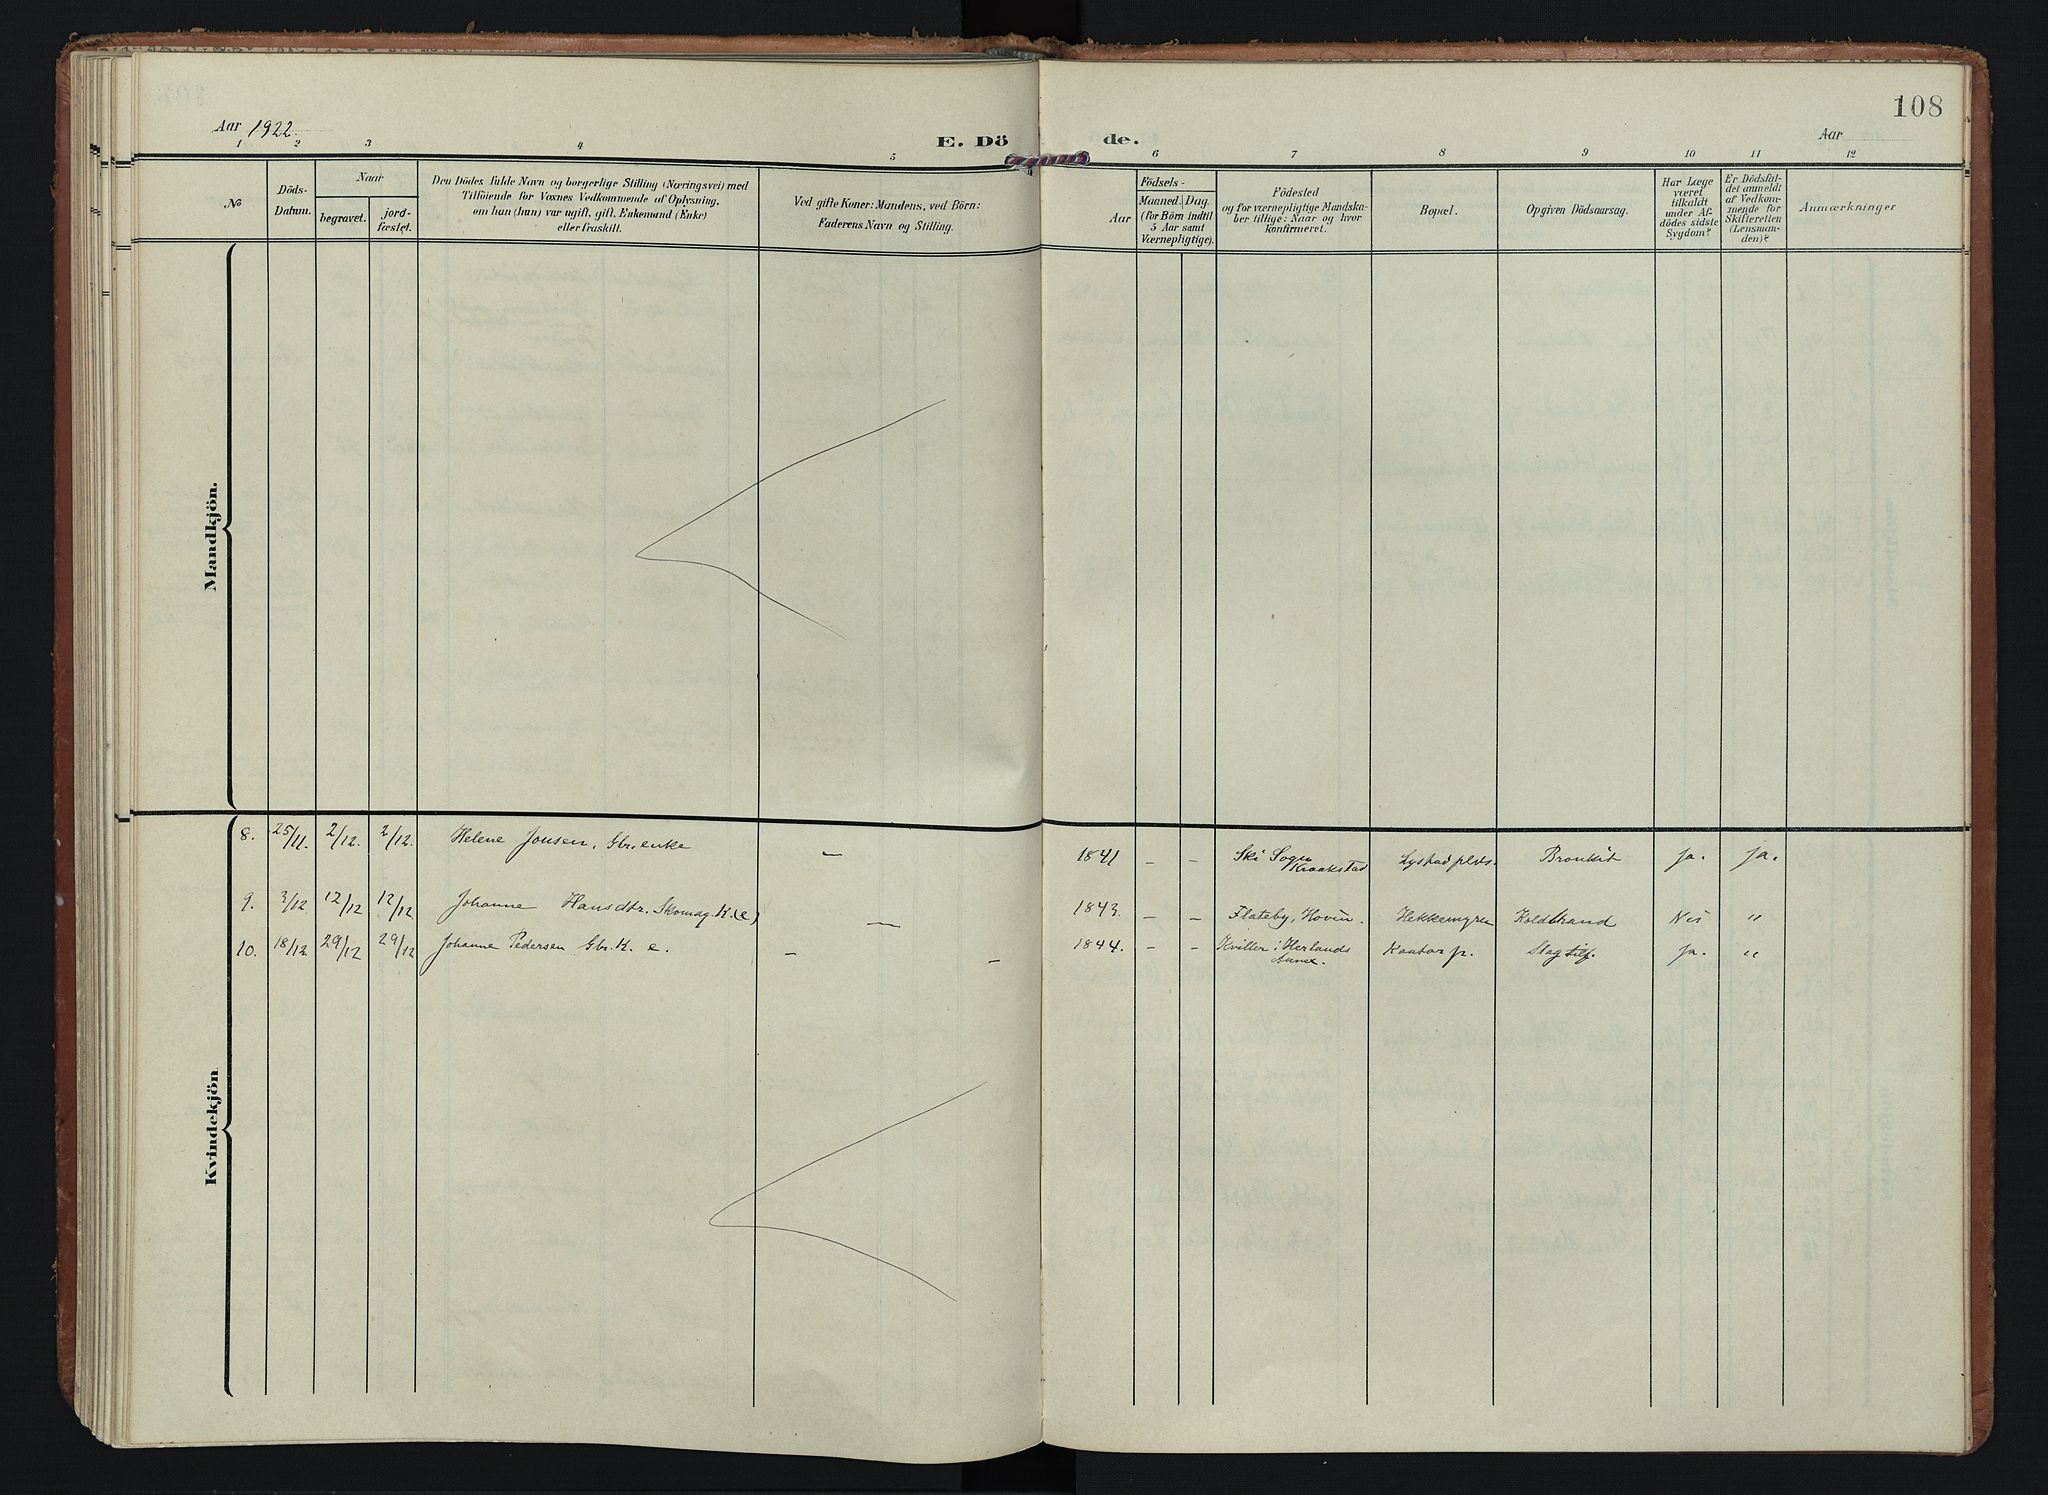 108
Aar 1922.
E. Döde.
Aar
1 2 3 4 5 6 7 8 9 10 11 12
№
Döds-
Datum.
Naar
begravet.
jord-
fæstet.
Den Dödes fulde Navn og borgerlige Stilling (Næringsvei) med
Tilföiende for Voxnes Vedkommende af Oplysning,
om han (hun) var ugift, gift, Enkemand (Enke)
eller fraskilt.
Ved gifte Koner: Mandens, ved Börn:
Faderens Navn og Stilling.
Födsels-
Aar
Maaned. Dag.
(for Börn indtil
5 Aar samt
Værnepligtige).
Födested
og for værnepligtige Mandska-
ber tillige: Naar og hvor
konfirmeret.
Bopæl.
Opgiven Dödsaarsag.
Har Læge
været
tilkaldt
under Af-
dödes sidste
Sygdom?
Er Dödsfal-
det anmeldt
af Vedkom-
mende for
Skifteretten
(Lensman-
den)?
Anmærkninger
Mandkjön.
Kvindekjön
8. 25/11. 2/12. 2/12. Helene Jonsen, Gbr.enke — 1841 - - Ski Sogn Kraakstad Lystadplds. Bronkit Ja. Ja.
9. 3/12 12/12 12/12 Johanne Hansdtr. Skomag.K.(e) — 1843. - - Flateby, Hovin. Hekkemyren Koldbrand Nei "
10. 18/12 29/12 29/12 Johanne Pedersen Gbr.K. e. - - 1844. - - Kviller i Herlands Annex. Kaatorp. Slagtilf. Ja. "